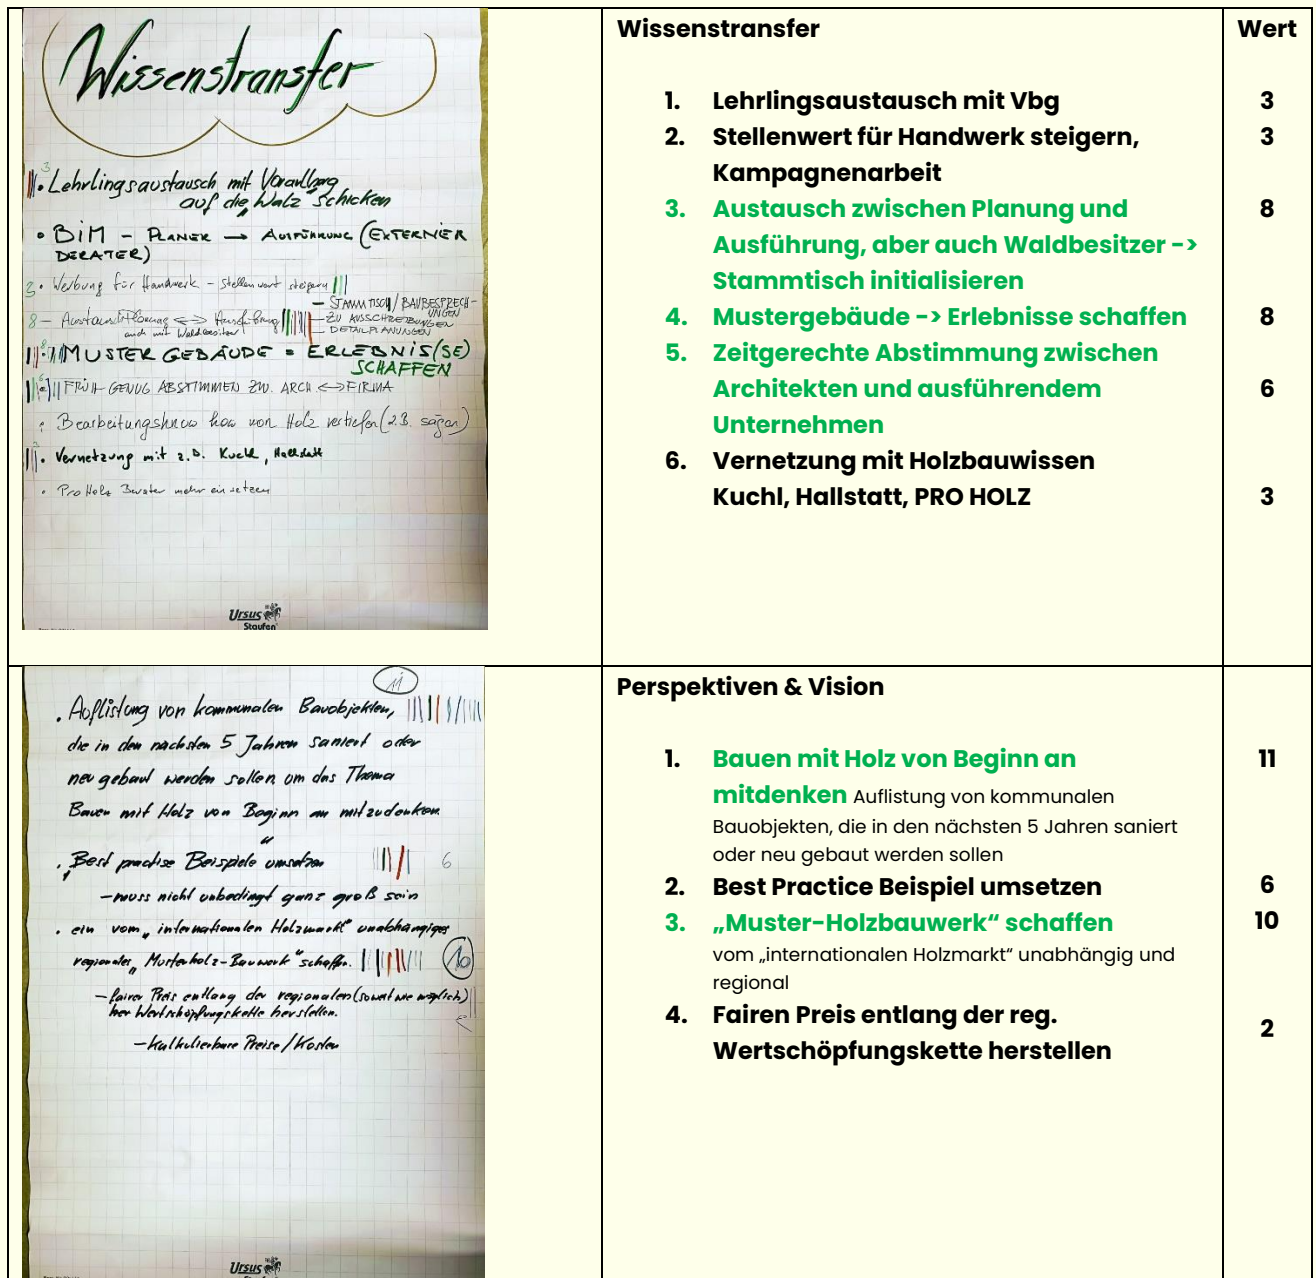 Wissenstransfer
3
• Lehrlingsaustausch mit Vorarlberg
auf die „Walz" schicken
• BIM – PLANER → AUSFÜHRUNG (EXTERNER
BERATER)
3 • Werbung für Handwerk – Stellenwert steigern
8 – Austausch Planung <=> Ausführung
auch mit Waldbesitzer
– STAMMTISCH / BAUBESPRECH-
UNGEN
– ZU AUSSCHREIBUNGEN
– DETAILPLANUNGEN
8 • MUSTER GEBÄUDE = ERLEBNIS(SE)
SCHAFFEN
6 • FRÜH GENUG ABSTIMMEN ZW. ARCH <=> FIRMA
• Bearbeitungsknow how von Holz vertiefen (z.B. sägen)
3 • Vernetzung mit z.B. Kuchl, Hallstatt
• Pro Holz Berater mehr einsetzen
Ursus
Staufen
Wissenstransfer
Wert
1. Lehrlingsaustausch mit Vbg 3
2. Stellenwert für Handwerk steigern, 3
Kampagnenarbeit
3. Austausch zwischen Planung und 8
Ausführung, aber auch Waldbesitzer ->
Stammtisch initialisieren
4. Mustergebäude -> Erlebnisse schaffen 8
5. Zeitgerechte Abstimmung zwischen
Architekten und ausführendem 6
Unternehmen
6. Vernetzung mit Holzbauwissen
Kuchl, Hallstatt, PRO HOLZ 3
11
• Auflistung von kommunalen Bauobjekten,
die in den nächsten 5 Jahren saniert oder
neu gebaut werden sollen um das Thema
Bauen mit Holz von Beginn an mitzudenken
• „Best practise" Beispiele umsetzen 6
– muss nicht unbedingt ganz groß sein
• ein vom „internationalen Holzmarkt" unabhängiges
regionales „Musterholz-Bauwerk" schaffen. 10
– fairer Preis entlang der regionalen (soweit wie möglich)
Wertschöpfungskette herstellen.
– Kalkulierbare Preise / Kosten
Ursus
Perspektiven & Vision
1. Bauen mit Holz von Beginn an 11
mitdenken Auflistung von kommunalen
Bauobjekten, die in den nächsten 5 Jahren saniert
oder neu gebaut werden sollen
2. Best Practice Beispiel umsetzen 6
3. „Muster-Holzbauwerk“ schaffen 10
vom „internationalen Holzmarkt“ unabhängig und
regional
4. Fairen Preis entlang der reg. 2
Wertschöpfungskette herstellen